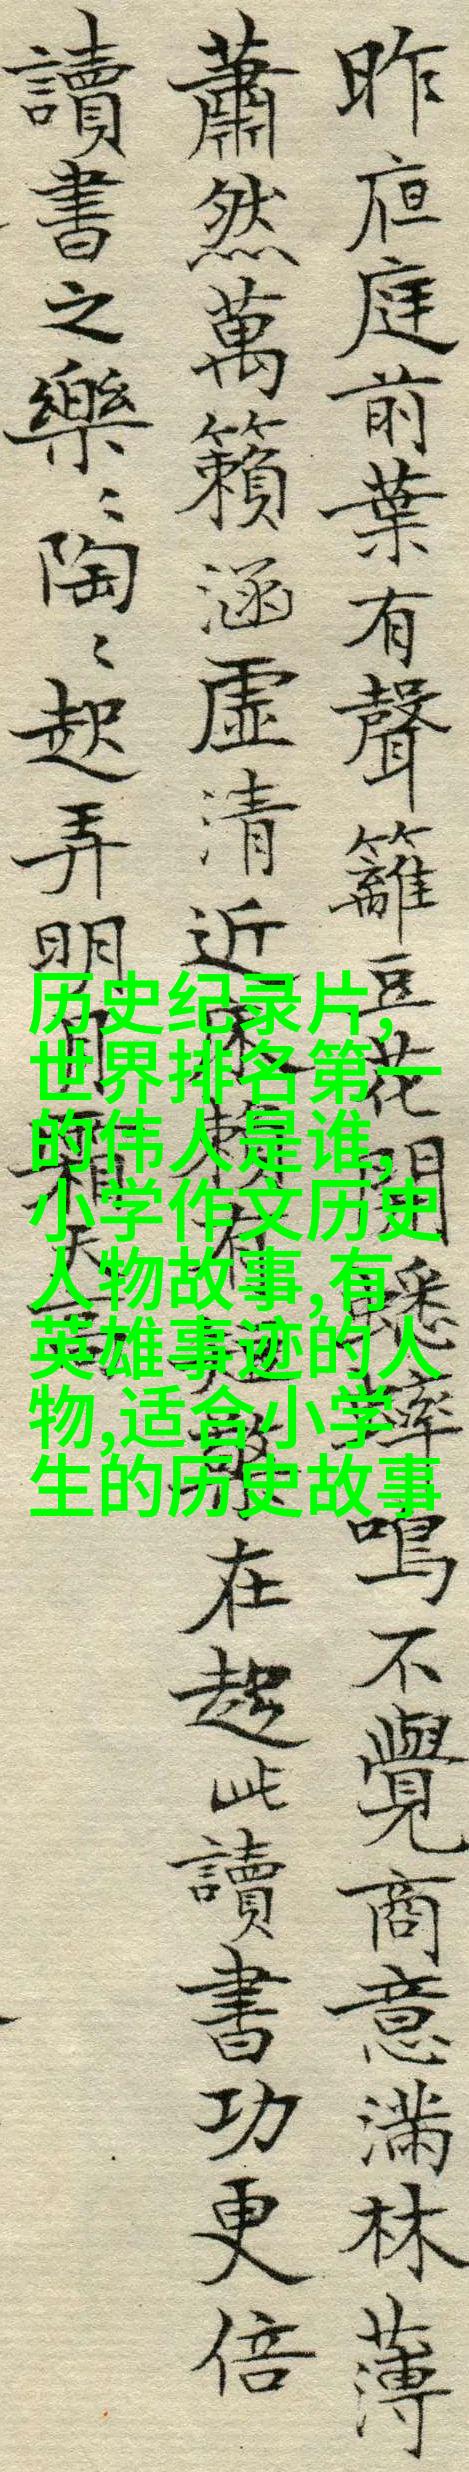 昨夜庭前葉有聲籬豆花開蟋蟀鳴不覺商意滿林薄
蕭然萬籟涵虛清近床賴有短檠在趁此讀書功更倍
讀書之樂〻陶〻起弄明月霜天高
历史纪录片,
世界排名第一
的伟人是谁,
小学作文历史
人物故事,有
英雄事迹的人
物,适合小学
生的历史故事